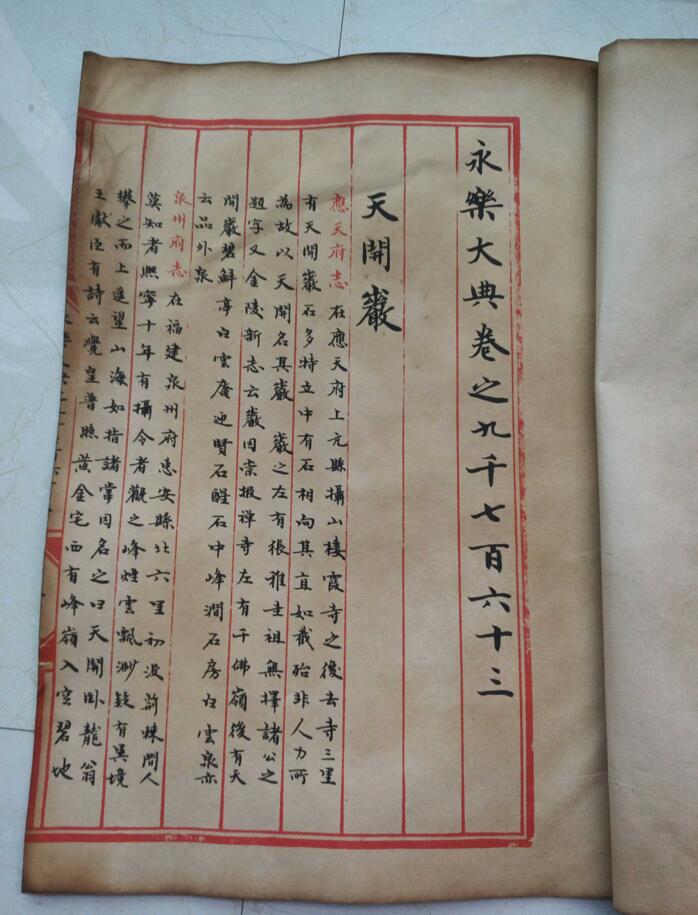 永樂大典卷之九千七百六十三
天開巖
應天府志 在應天府上元縣攝山棲霞寺之後去寺三里
有天開巖石多特立中有石相向其直如截殆非人力所
為故以天開名其巖 巖之左有張稚圭祖無擇諸公之
題字又金陵新志云巖因崇報禪寺左有千佛嶺後有天
開巖碧鮮亭白雲庵迎賢石醒石中峰澗石房白雲泉亦
云品外泉
泉州府志 在福建泉州府惠安縣北六里初沒荊棘間人
莫知者熙寧十年有攝令者觀之峰煙雲飄渺疑有異境
攀之而上遙望山海如指諸掌因名之曰天開臥龍翁
王獻臣有詩云覺皇普照黃金宅西有峰嶺入空碧地